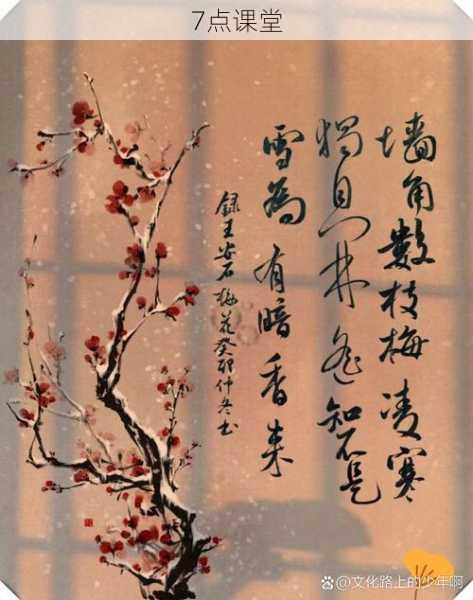 7点课堂
墙角數枝梅凌寒
獨自開遥知不是
雪為有暗香来
録王安石梅花癸卯仲冬书
@文化路上的少年啊